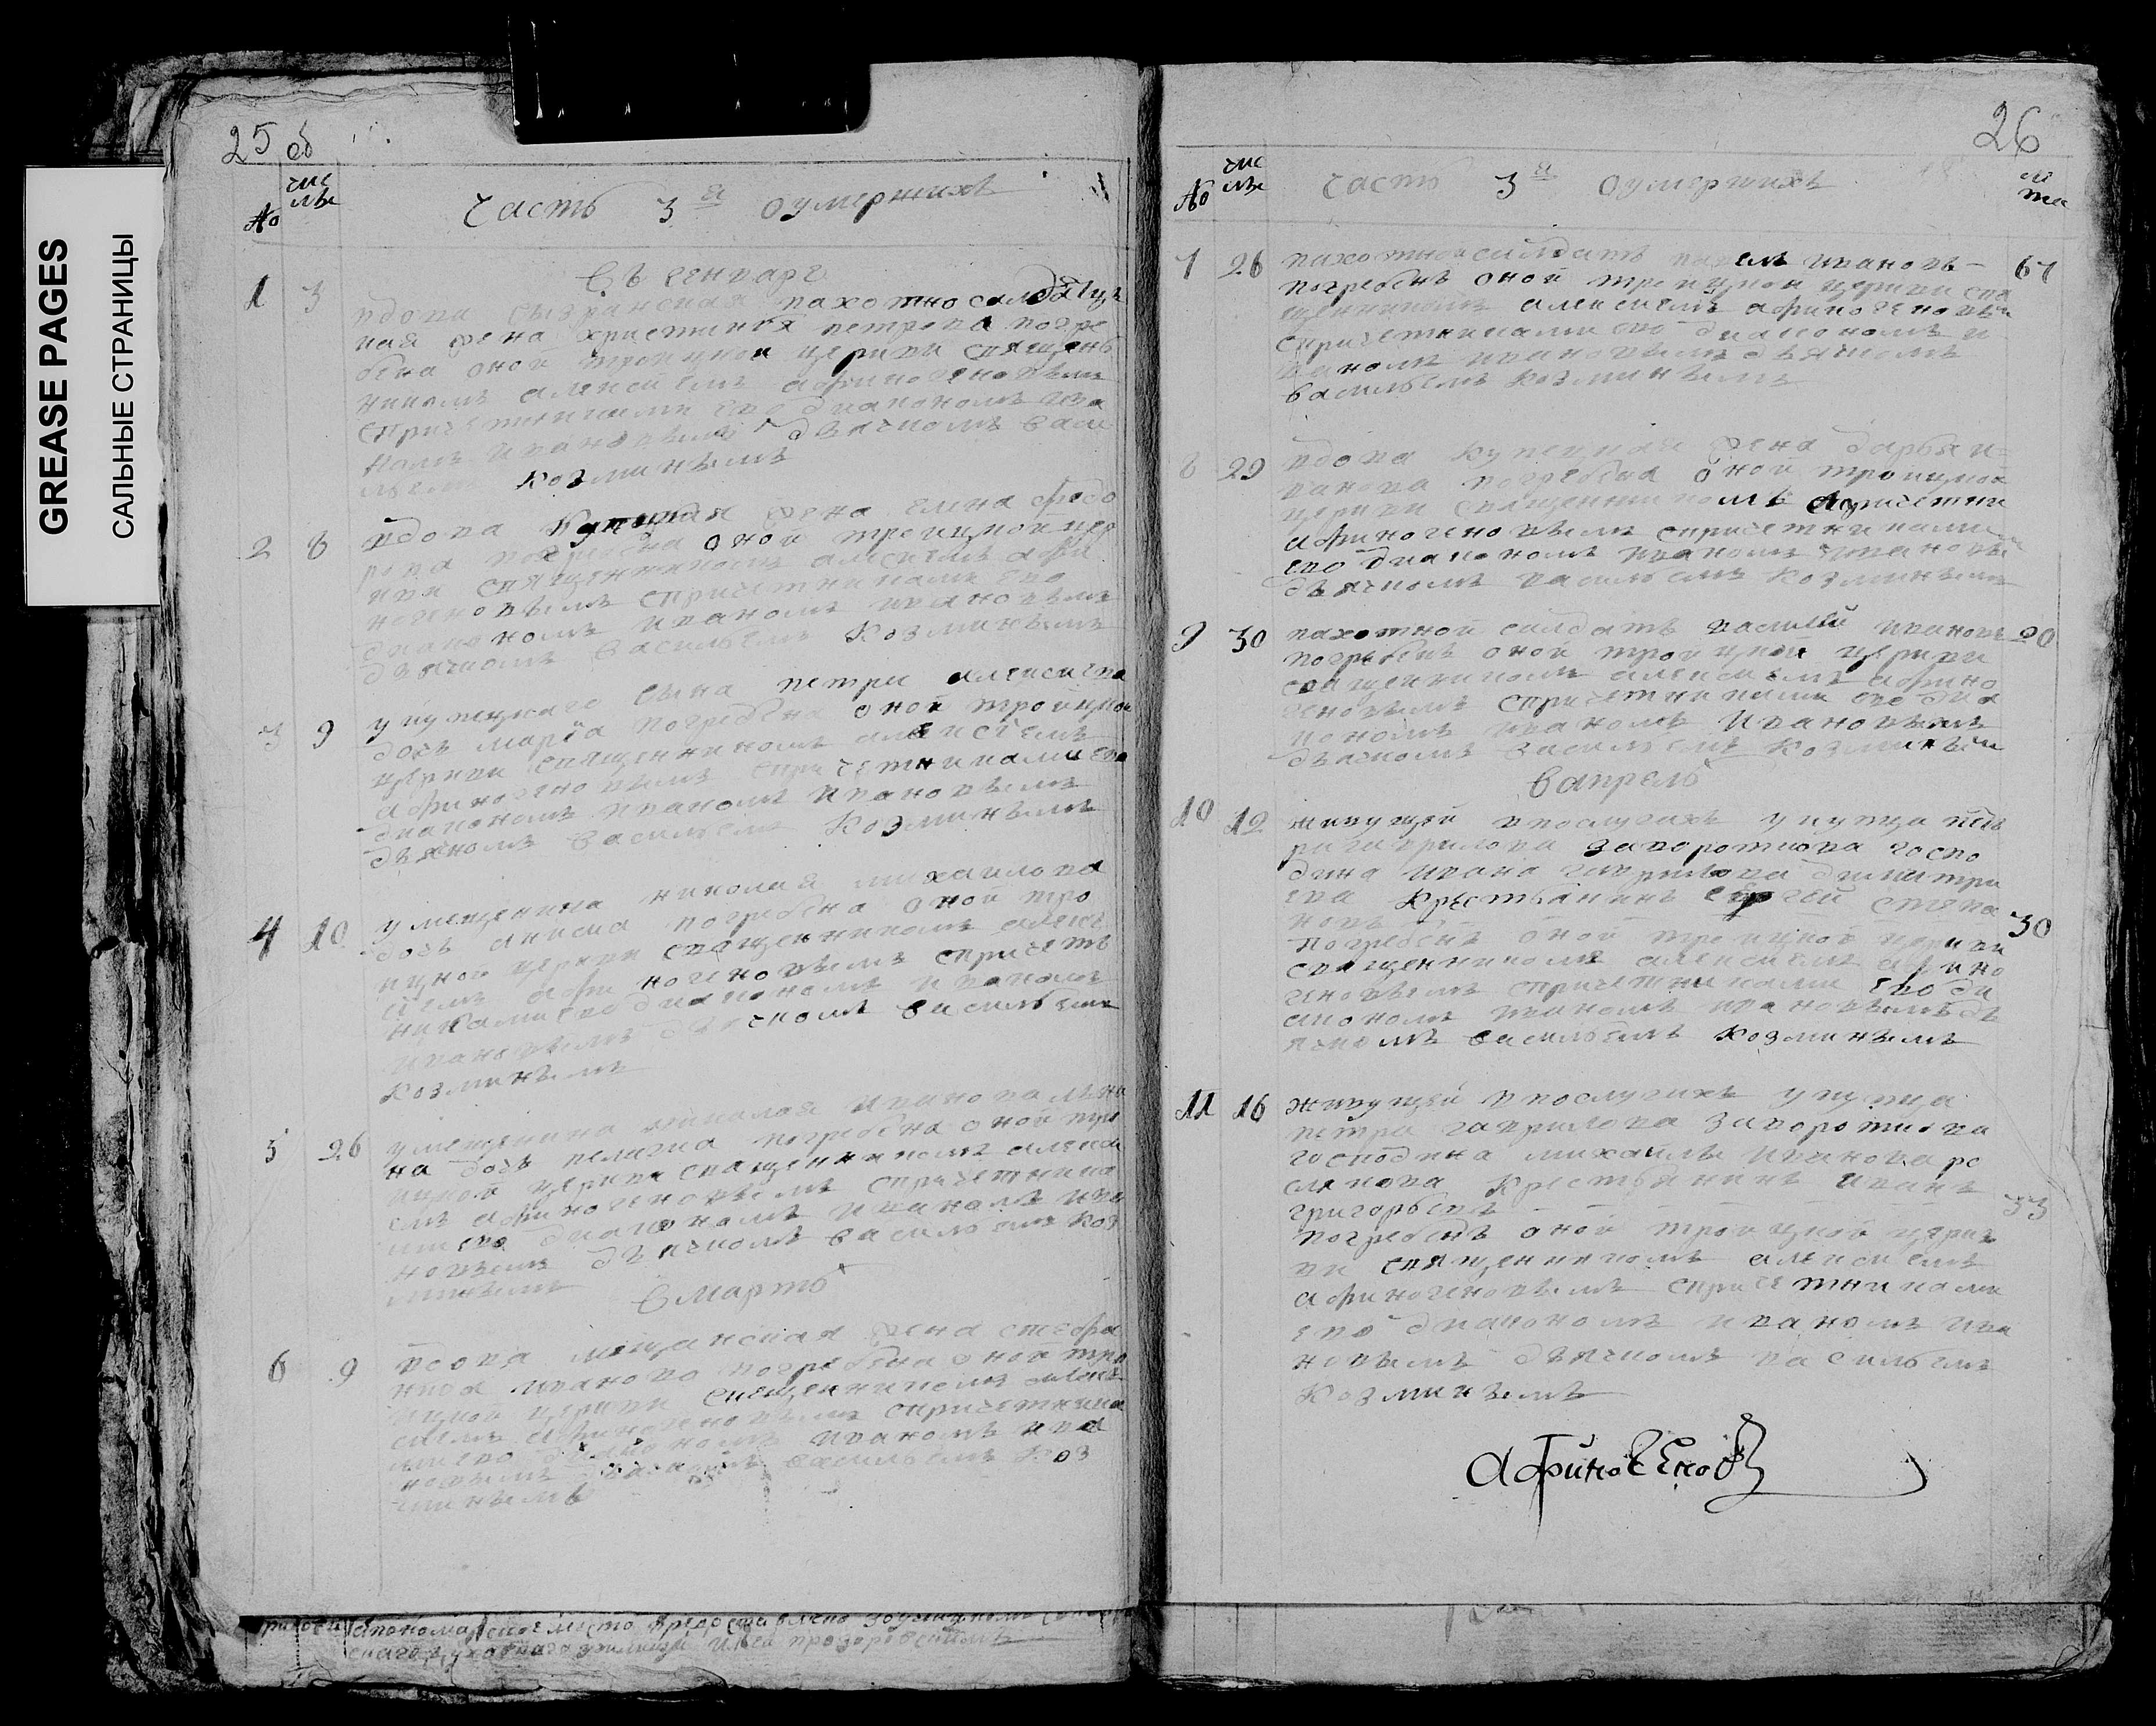 GREASE PAGES
САЛЬНЫЕ СТРАНИЦЫ
25 об
№
чис
ла
часть 3 я о умершихъ
въ генваре
1 3 вдова сызранская пахотно салдатс
кая жена христинья петрова погре
бена оной троицкой церкви священъ
никомъ алексеемъ афиногеновымъ
спричетниками ево диакономъ ива
номъ ивановымъ дьячкомъ васи
льемъ козминымъ
2 8 вдова купецкая жена елена федо
рова погребена оной троицкой цер
кви священникомъ алексеемъ афи
ногеновымъ спричетниками ево
диакономъ иваномъ ивановымъ
дьячкомъ васильемъ козминымъ
3 9 у купецкаго сына петра алексеева
дочь марiа погребена оной троицкой
церкви священникомъ алексеемъ
афиногеновымъ спричетниками ево
диакономъ иваномъ ивановымъ
дьячкомъ васильемъ козминымъ
4 10 у мещенина николая михаилова
дочь анисиа погребена оной тро
ицкой церкви священникомъ алекс
еемъ афиногеновымъ спричет
никами ево диакономъ иваномъ
ивановымъ дьячкомъ васильемъ
козминымъ
5 26 у мещенина николая иванова
на дочь пелагиа погребена оной тро
ицкой церкви священникомъ алексе
емъ афиногеновымъ спричетника
ми ево диакономъ иваномъ ива
новымъ дьячкомъ васильемъ коз
минымъ
в марте
6 9 вдова мещанская жена стефа
нида иванова погребена оной тро
ицкой церкви священникомъ алек
сеемъ афиногеновымъ спричетника
ми ево диакономъ иваномъ ива
новымъ дьячкомъ васильемъ коз
минымъ
пономарское место
26
№
чис
ла
часть 3 я о умершихъ
ле
та
7 26 пахотной салдатъ павелъ ивановъ 67
погребенъ оной троицкой церкви свя
щенникомъ алексеемъ афиногеновым
спричетниками ево диакономъ и
ваномъ ивановымъ дьячкомъ
васильемъ козминымъ
8 29 вдова купецкая жена дарья и
ванова погребена оной троицкой
церкви священникомъ
афиногеновымъ спричетниками
ево диакономъ иваномъ ивановы
дьячкомъ васильемъ козминымъ
9 30 пахотной салдатъ василей ивановъ 20
погребенъ оной троицкой церкви
священникомъ алексеемъ афино
геновымъ спричетниками ево диа
кономъ иваномъ ивановымъ
дьячкомъ васильемъ козминым
в апреле
10 12 живущей в послугахъ у купца пет
ра гаврилова завороткова госпо
дина ивана гаврилова димитри
ева крестьянинъ сергей степа
новъ 30
погребенъ оной троицкой церкви
священникомъ алексеемъ афино
геновымъ спричетниками ево ди
акономъ иваномъ ивановымъ дь
ячкомъ васильемъ козминымъ
11 16 живущей в послугахъ у купца
петра гаврилова завороткова
господина михайлы иванова ро
слякова крестьянинъ иванъ
григорьевъ 33
погребенъ оной троицкой церк
ви священникомъ алексеемъ
афиногеновымъ спричетниками
ево диакономъ иваномъ ива
новымъ дьячкомъ васильемъ
козминымъ
Афиногеновъ